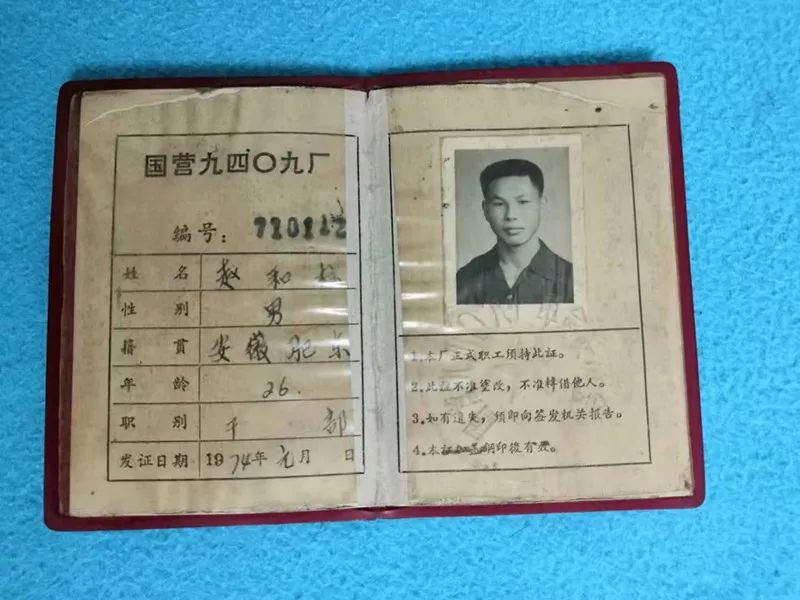 国营九四〇九厂
编号：710112
姓名 赵和
性别 男
籍贯 安徽肥东
年龄 26.
职别 干部
发证日期 1974年元月 日
1.本厂正式职工须持此证。
2.此证不准塗改，不准转借他人。
3.如有遗失，须即向签发机关报告。
4.本证 钢印後有效。